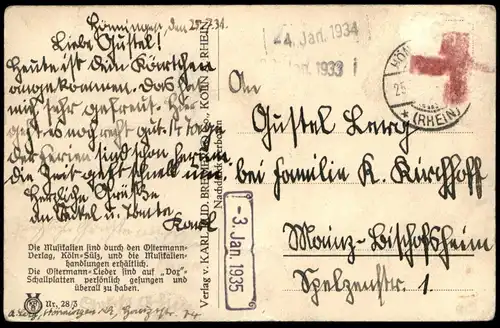 Hönningen, den 25.7.34.
Liebe Gustel!
Heute ist dein Kärtchen
angekommen. Das hat
mich sehr gefreut. Hier
geht es noch recht gut.
der Ferien sind schon herum.
die Zeit geht schnell um.
Herzliche Grüße
an Onkel u. Tante
Karl
Die Musikalien sind durch den Ostermann-
Verlag, Köln-Sülz, und die Musikalien-
handlungen erhältlich.
Die Ostermann-Lieder sind auf „Dog"-
Schallplatten persönlich gesungen und
überall zu haben.
Nr. 28/3
Verlag v. KARL RUD. BREMER & Co., KÖLN A. RHEIN.
Nachdruck verboten
-4. Jan. 1934
Jan. 1933
-3. Jan. 1935
HÖN
25
* (RHEIN)
An
Gustel Lerch
bei Familie K. Kirchhoff
Mainz-Bischofsheim
Spelzenstr. 1